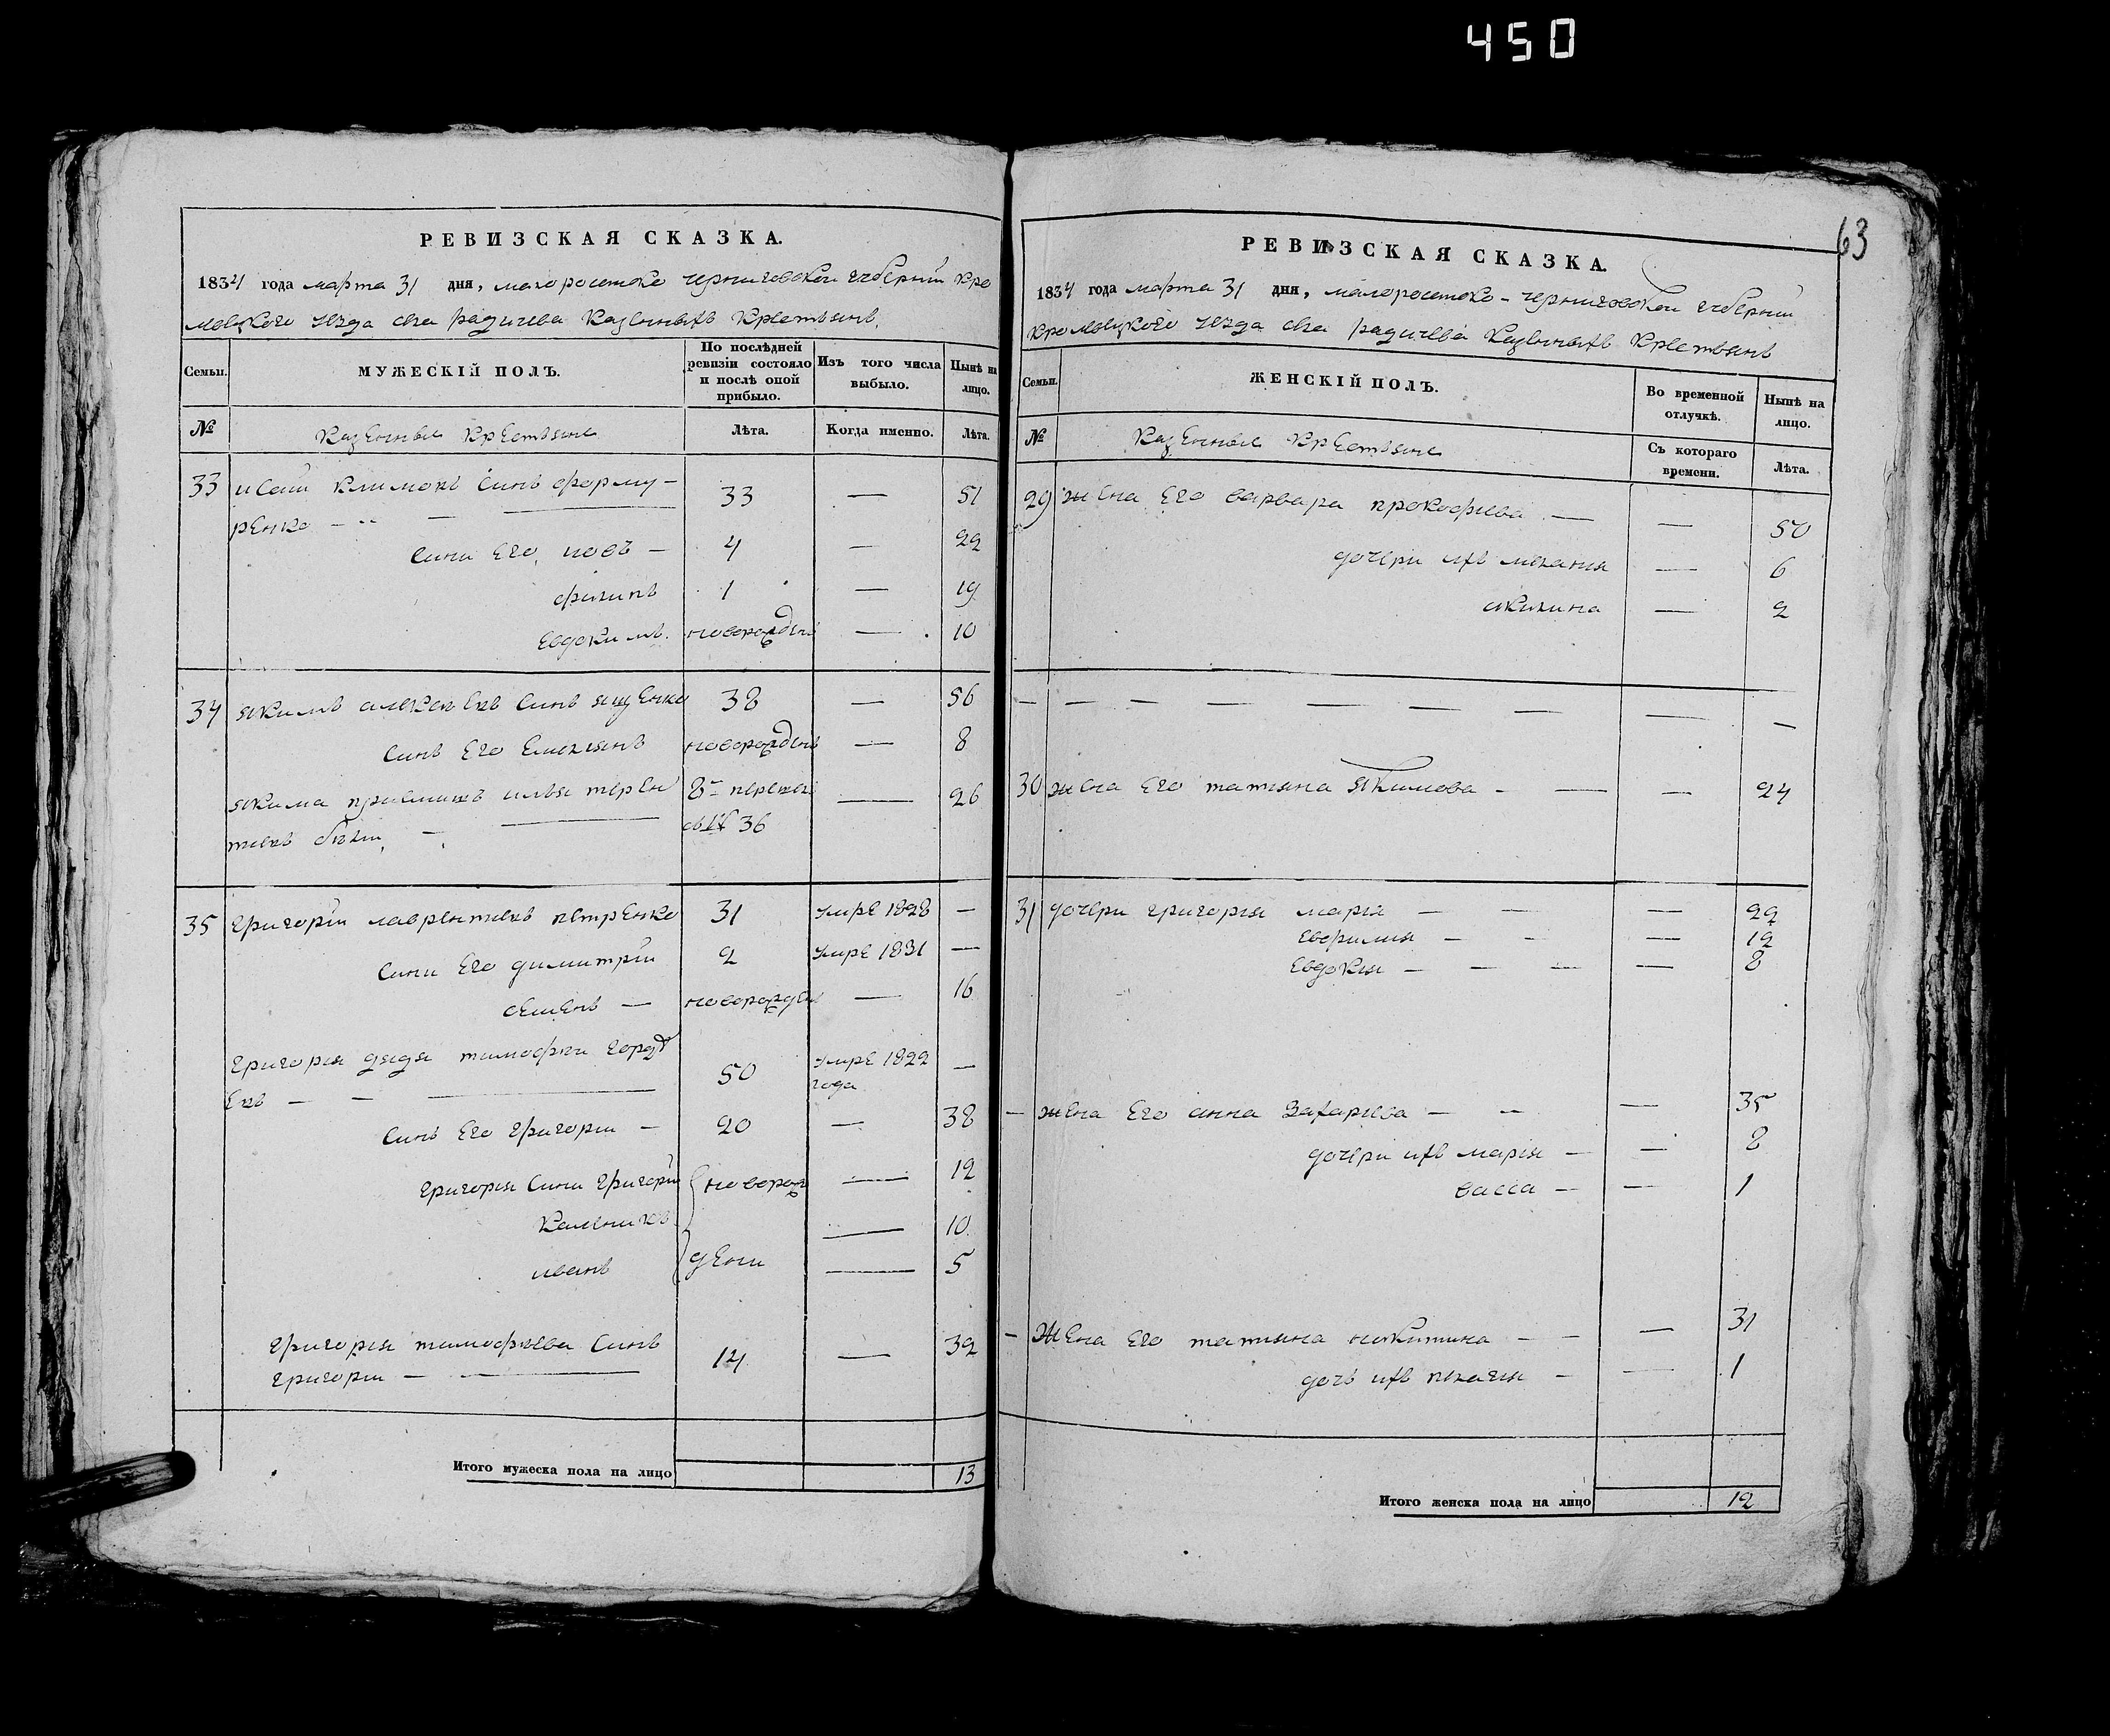 450
РЕВИЗСКАЯ СКАЗКА.
1834 года марта 31 дня, малоросийско черниговской губернии кро
левецкого уезда села радичева казенныхъ крестьянъ.
Семьи.
МУЖЕСКІЙ ПОЛЪ.
По послѣдней ревизіи состояло и послѣ оной прибыло.
Изъ того числа выбыло.
Нынѣ на лицо.
№
казенные крестьяне
Лѣта.
Когда именно.
Лѣта.
33 исаий климовъ синъ форму- 33 — 51
ренко — —
сини его, иовъ — 4 — 22
филипъ 1 — 19
евдокимъ. новорожденъ — 10
34 якимъ алексеевъ синъ ященко 38 — 56
синъ его емилиянъ новорожденъ — 8
якима приемишъ илья терен 8й — 26
тиевъ 36
35 григорій лаврентиевъ петренко 31 умре 1828 —
сини его димитрій 2 умре 1831 —
семенъ — новорожден — 16
григория дядя тимофей горд
еевъ — — 50 умре 1822 года —
синъ его григорий — 20 — 38
григория сини григорій новорож — 12
калеников — 10
иванъ дени — 5
григория тимофеева синъ
григорий — 14 — 32
Итого мужеска пола на лицо 13
63
РЕВИЗСКАЯ СКАЗКА.
1834 года марта 31 дня, малоросийско-черниговской губерний
кролевецкого уезда села радичева казенныхъ крестьянъ
Семьи.
ЖЕНСКІЙ ПОЛЪ.
Во временной отлучкѣ.
Нынѣ на лицо.
№
казенные крестьяне
Съ котораго времени.
Лѣта.
29 жена его варвара прокофиева — — 50
дочери ихъ мелания — 6
акилина — 2
— — — — — — — — — —
30 жена его татияна якимова — — — 24
31 дочери григория мария — — — 22
евфимия — — — 12
евдокия — — — — 8
— жена его анна захариева — — — 35
дочери ихъ мария — — 8
васса — — 1
— жена его татияна никитина — — — 31
дочь ихъ пелагия — — 1
Итого женска пола на лицо 12